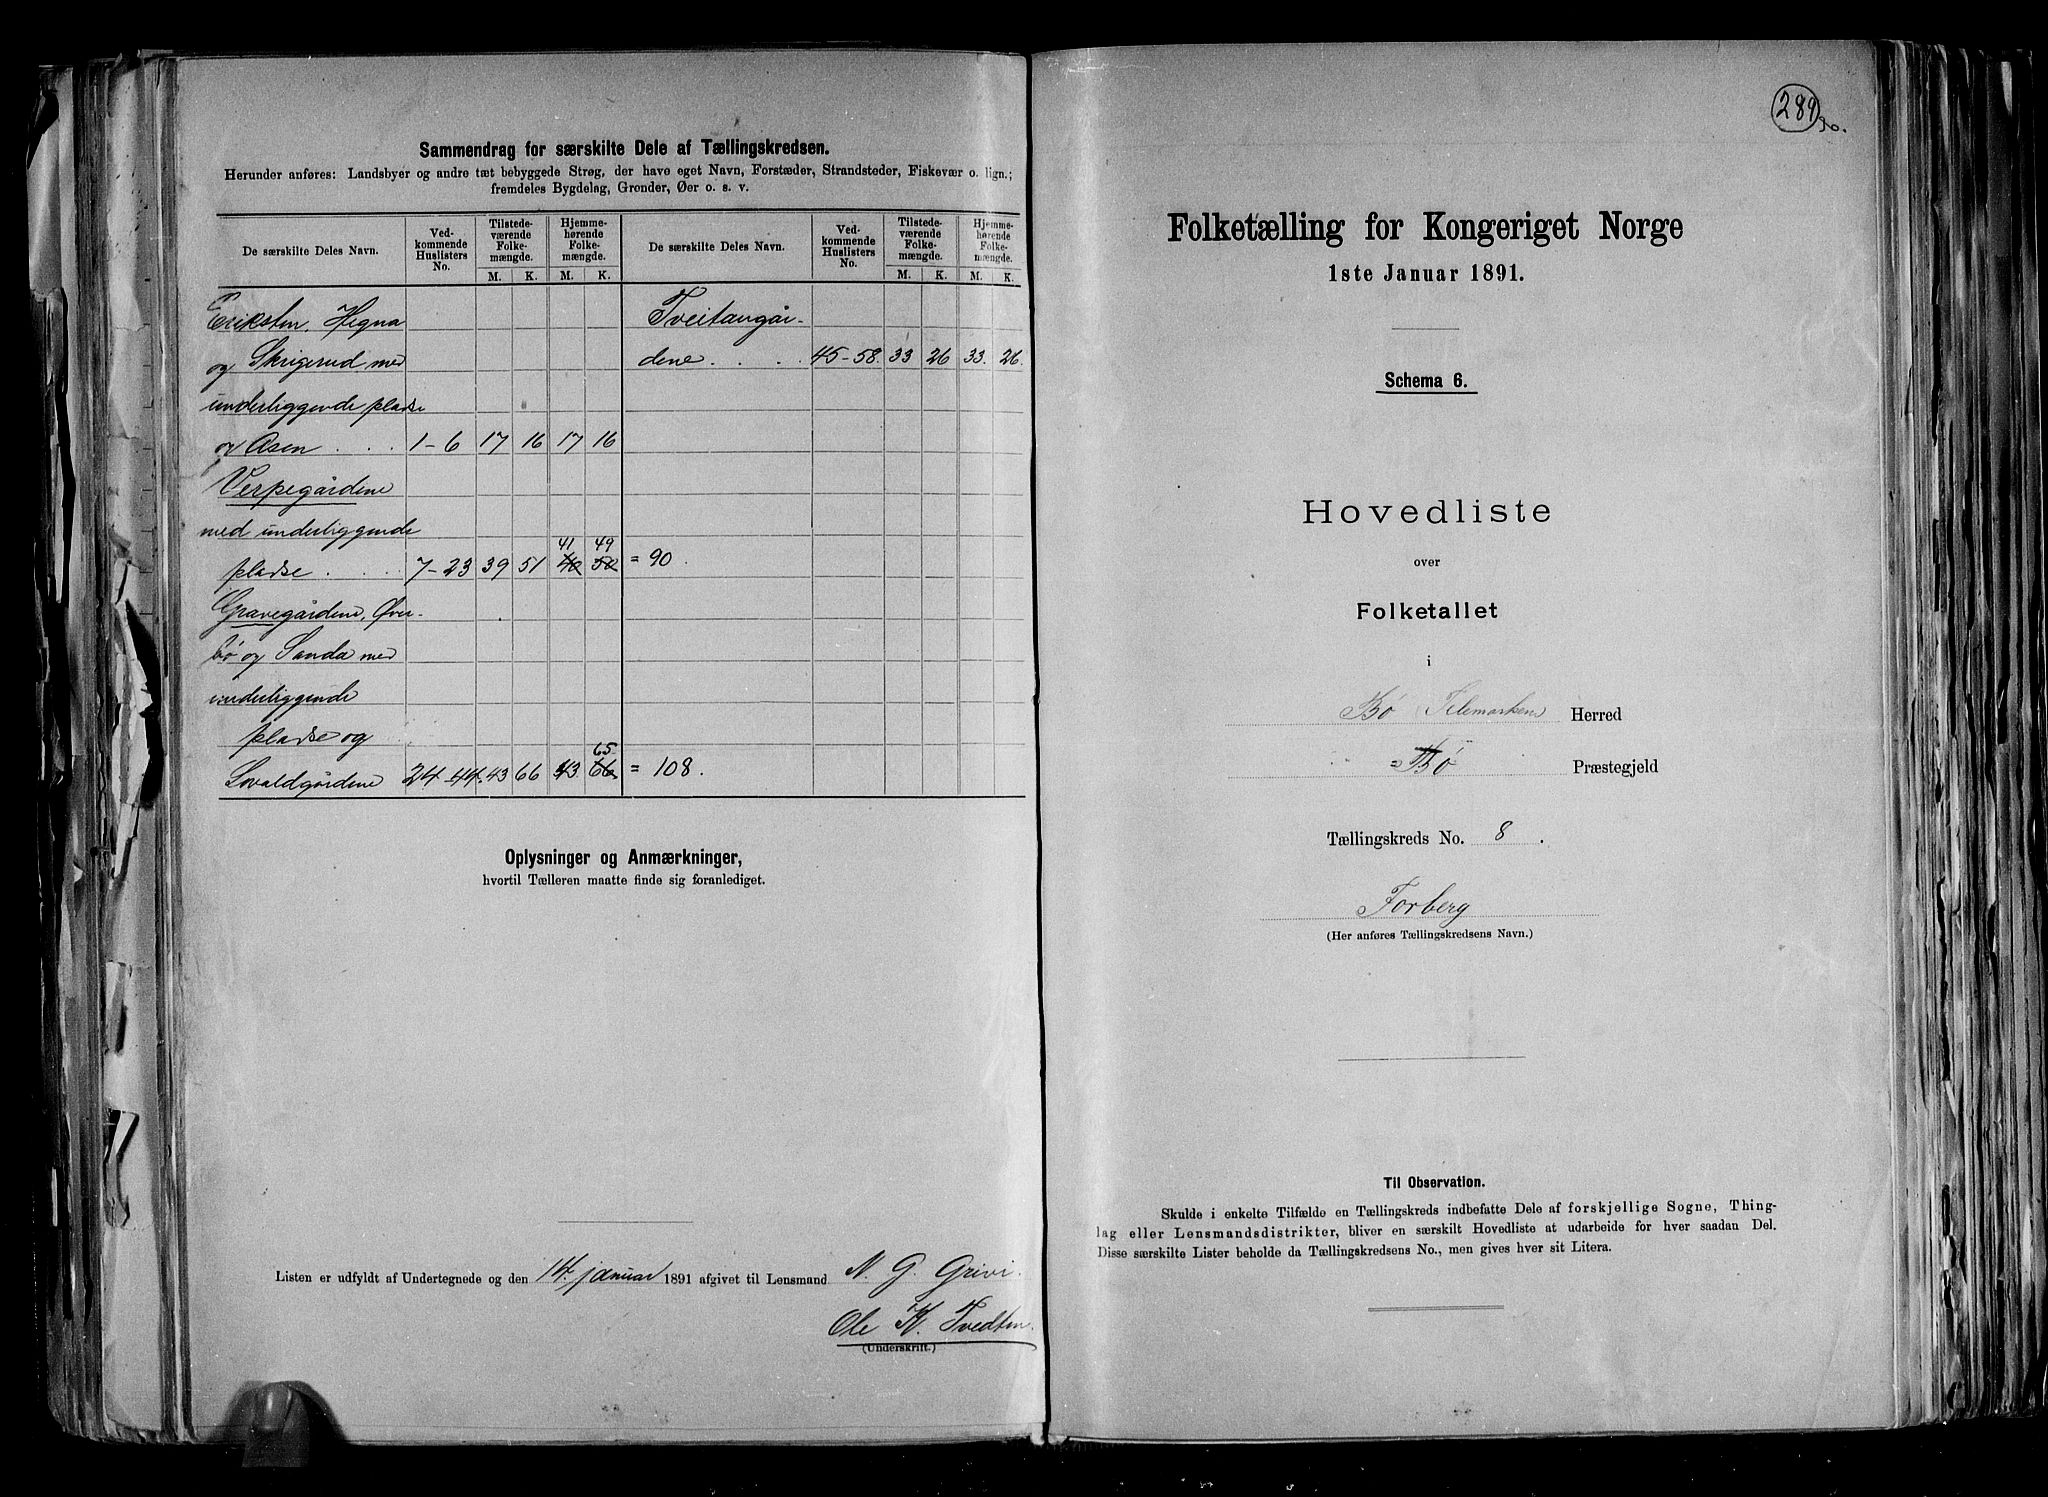 Sammendrag for særskilte Dele af Tællingskredsen.
Herunder anføres: Landsbyer og andre tæt bebyggede Strøg, der have eget Navn, Forstæder, Strandsteder, Fiskevær o. lign.;
fremdeles Bygdelag, Grender, Øer o. s. v.
De særskilte Deles Navn.
Ved-
kommende
Huslisters
No.
Tilstede-
værende
Folke-
mængde.
M. K.
Hjemme-
hørende
Folke-
mængde.
M. K.
De særskilte Deles Navn.
Ved-
kommende
Huslisters
No.
Tilstede-
værende
Folke-
mængde.
M. K.
Hjemme-
hørende
Folke-
mængde.
M. K.
Eriksten, Hegna
og Skrigerud med
underliggende pladse
og Åsen . . . 1-6 17 16 17 16
Verpegårdene
med underliggende
41 49
pladse . . . 7-23 39 51 40 50 = 90.
Gravegårdene, Øver-
bø og Sanda med
underliggende
pladse og
65
Sovaldgårdene 24-44. 43 66 43 66 = 108.
Tveitangår-
dene . . . 45-58. 33 26 33. 26.
Oplysninger og Anmærkninger,
hvortil Tælleren maatte finde sig foranlediget.
Listen er udfyldt af Undertegnede og den 14. januar 1891 afgivet til Lensmand N. G. Grivi.
Ole K. Tvedten.
(Underskrift.)
289
Folketælling for Kongeriget Norge
1ste Januar 1891.
Schema 6.
Hovedliste
over
Folketallet
i
Bø Telemarken Herred
Bø Præstegjeld
Tællingskreds No. 8.
Forberg
(Her anføres Tællingskredsens Navn.)
Til Observation.
Skulde i enkelte Tilfælde en Tællingskreds indbefatte Dele af forskjellige Sogne, Thing-
lag eller Lensmandsdistrikter, bliver en særskilt Hovedliste at udarbeide for hver saadan Del.
Disse særskilte Lister beholde da Tællingskredsens No., men gives hver sit Litera.